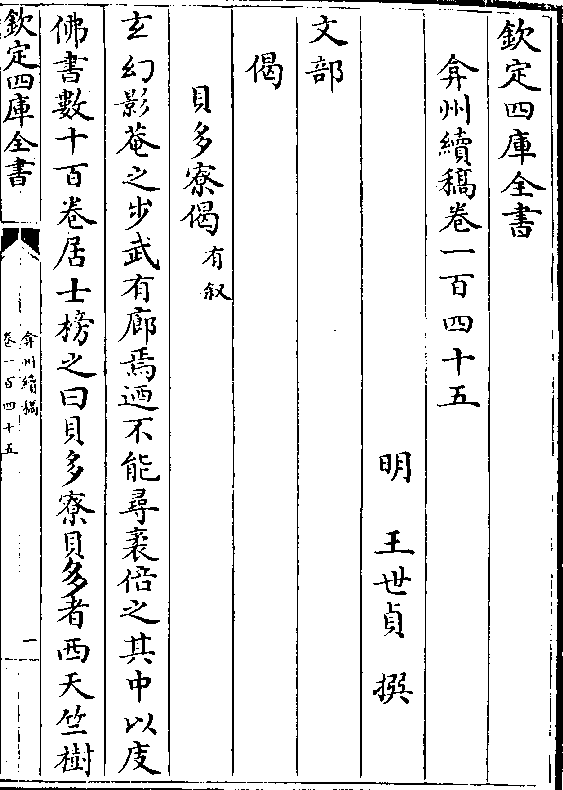 欽定四庫全書
弇州續稿卷一百四十五
明 王世貞 撰
文部
偈
貝多寮偈有叙
玄幻影菴之步武有廊焉迺不能尋袤倍之其中以庋
佛書數十百卷居士榜之曰貝多寮貝多者西天竺樹
欽定四庫全書
弇州續稿
卷一百四十五
一